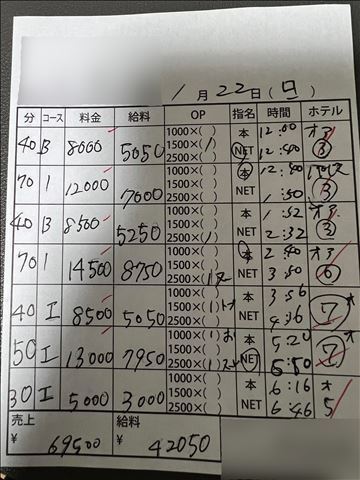 1月22日(日)
分 コース 料金 給料 OP 指名 時間 ホテル
40 B 8000 5050 1000×( ) 1500×(1) 2500×( ) 本 NET 12:00 12:40 オア ③
70 I 12000 7000 1000×( ) 1500×( ) 2500×( ) 本 NET 12:40 1:50 ③
40 B 8500 5250 1000×( ) 1500×( ) 2500×(1) 本 NET 1:52 2:32 オア ③
70 I 14500 8750 1000×( ) 1500×( ) 2500×( 本 NET 2:40 3:50 オア ⑥
40 エ 8500 5050 1000×( ) 1500×(1) 2500×( ) 本 NET 3:56 4:36 ⑦
50 エ 13000 7950 1000×(1) 1500×( ) 2500×(1 本 NET 5:20 ⑦
30 エ 5000 3000 1000×( ) 1500×( ) 2500×( ) 本 NET 6:16 6:46 オ 5
売上 給料
¥ 69500 ¥ 42050